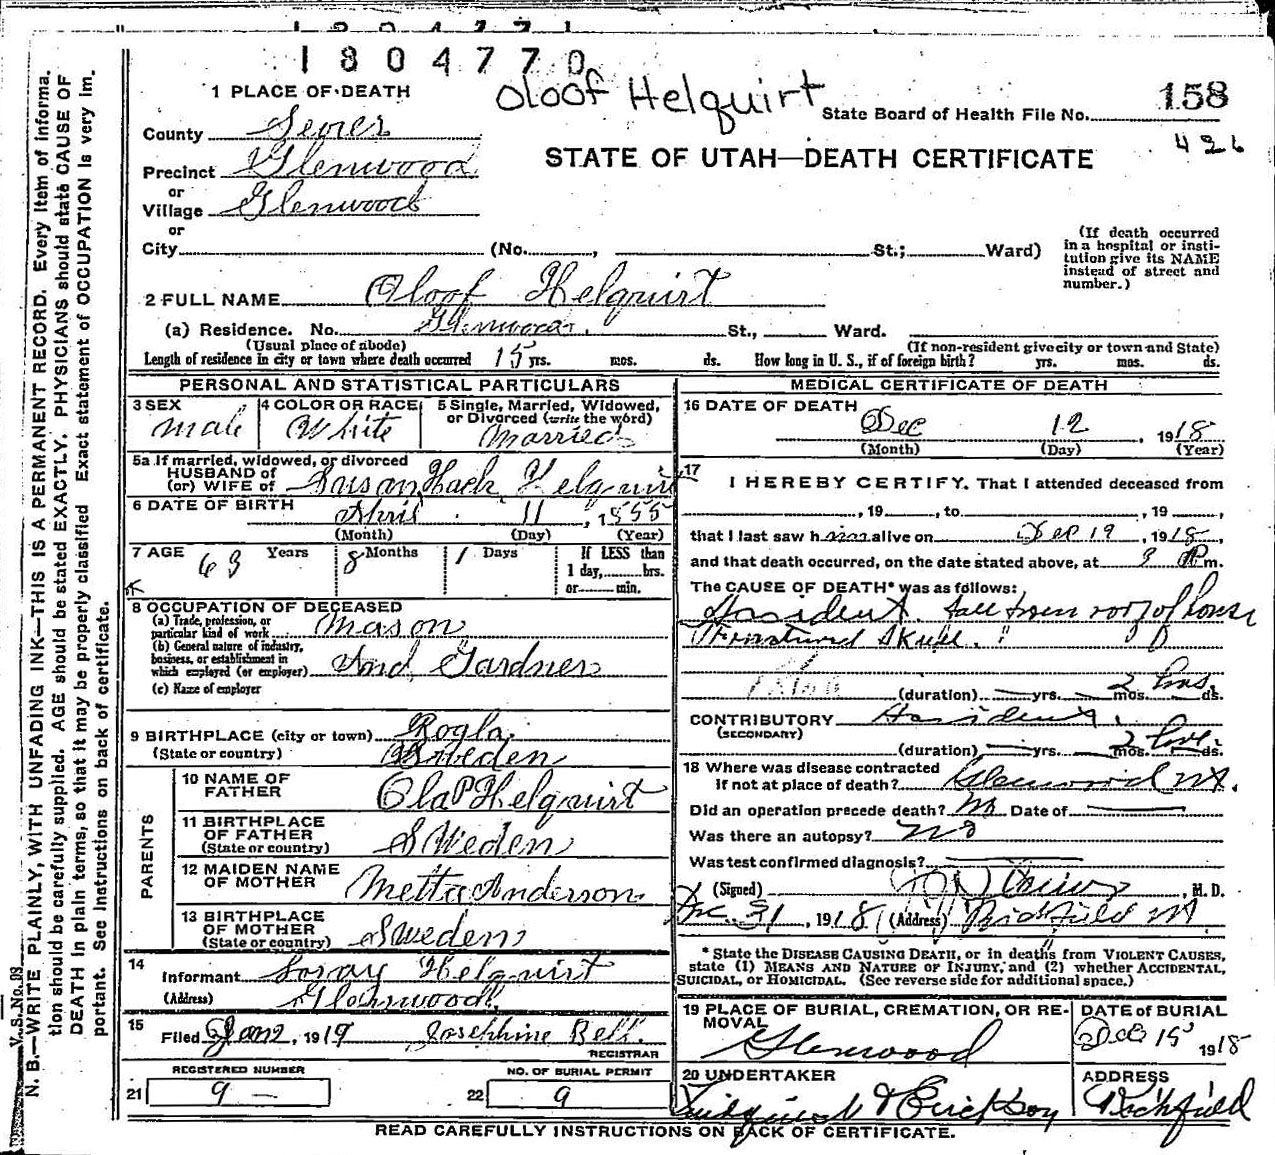 1804770
Oloof Helquirt
1 PLACE OF DEATH
State Board of Health File No. 158
426
County Sevier
STATE OF UTAH—DEATH CERTIFICATE
Precinct Glenwood
or
Village Glenwood
or
City (No. , St.; Ward)
(If death occurred in a hospital or insti-
tution give its NAME
instead of street and
number.)
2 FULL NAME Oloof Helquirt
(a) Residence. No. Glenwood. St., Ward.
(Usual place of abode) (If non-resident give city or town and State)
Length of residence in city or town where death occurred 15 yrs. mos. ds. How long in U. S., if of foreign birth? yrs. mos. ds.
PERSONAL AND STATISTICAL PARTICULARS
3 SEX
male
4 COLOR OR RACE
White
5 Single, Married, Widowed,
or Divorced (write the word)
Married
5a If married, widowed, or divorced
HUSBAND of
(or) WIFE of Susan Hack Helquirt
6 DATE OF BIRTH
April 11, 1855
(Month) (Day) (Year)
7 AGE 63 Years 8 Months 1 Days
If LESS than
1 day, hrs.
or min.
8 OCCUPATION OF DECEASED
(a) Trade, profession, or
particular kind of work Mason
(b) General nature of industry,
business, or establishment in
which employed (or employer) And Gardner
(c) Name of employer
9 BIRTHPLACE (city or town) Rogla.
(State or country) Sweden
PARENTS
10 NAME OF
FATHER Ola P Helquirt
11 BIRTHPLACE
OF FATHER
(State or country) Sweden
12 MAIDEN NAME
OF MOTHER Metta Anderson
13 BIRTHPLACE
OF MOTHER
(State or country) Sweden
14
Informant Helquirt
(Address) Glenwood
15
Filed Jan 2, 1919 Josephine Bell.
REGISTRAR
REGISTERED NUMBER
21 9 —
NO. OF BURIAL PERMIT
22 9
MEDICAL CERTIFICATE OF DEATH
16 DATE OF DEATH
Dec 12, 1918
(Month) (Day) (Year)
17
I HEREBY CERTIFY. That I attended deceased from
, 19 , to , 19 ,
that I last saw him alive on Dec 19, 1918,
and that death occurred, on the date stated above, at 9 P m.
The CAUSE OF DEATH* was as follows:
Accident. fall from roof of house
Fractured Skull. "
(duration) — yrs. — mos. 2 hrs. ds.
CONTRIBUTORY Accident.
(SECONDARY)
(duration) — yrs. mos. 2 hrs ds.
18 Where was disease contracted
if not at place of death? Glenwood Ut.
Did an operation precede death? No Date of
Was there an autopsy? No
Was test confirmed diagnosis?
(Signed) , M. D.
Dec. 31, 1918 (Address) Richfield Ut
* State the DISEASE CAUSING DEATH, or in deaths from VIOLENT CAUSES,
state (1) MEANS AND NATURE OF INJURY, and (2) whether ACCIDENTAL,
SUICIDAL, or HOMICIDAL. (See reverse side for additional space.)
19 PLACE OF BURIAL, CREMATION, OR RE-
MOVAL
Glenwood
DATE OF BURIAL
Dec 15 1918
20 UNDERTAKER
& Erickson
ADDRESS
Richfield
READ CAREFULLY INSTRUCTIONS ON BACK OF CERTIFICATE.
V. S. No. 98
N. B.—WRITE PLAINLY, WITH UNFADING INK—THIS IS A PERMANENT RECORD. Every item of informa-
tion should be carefully supplied. AGE should be stated EXACTLY. PHYSICIANS should state CAUSE OF
DEATH in plain terms, so that it may be properly classified Exact statement of OCCUPATION is very im-
portant. See Instructions on back of certificate.